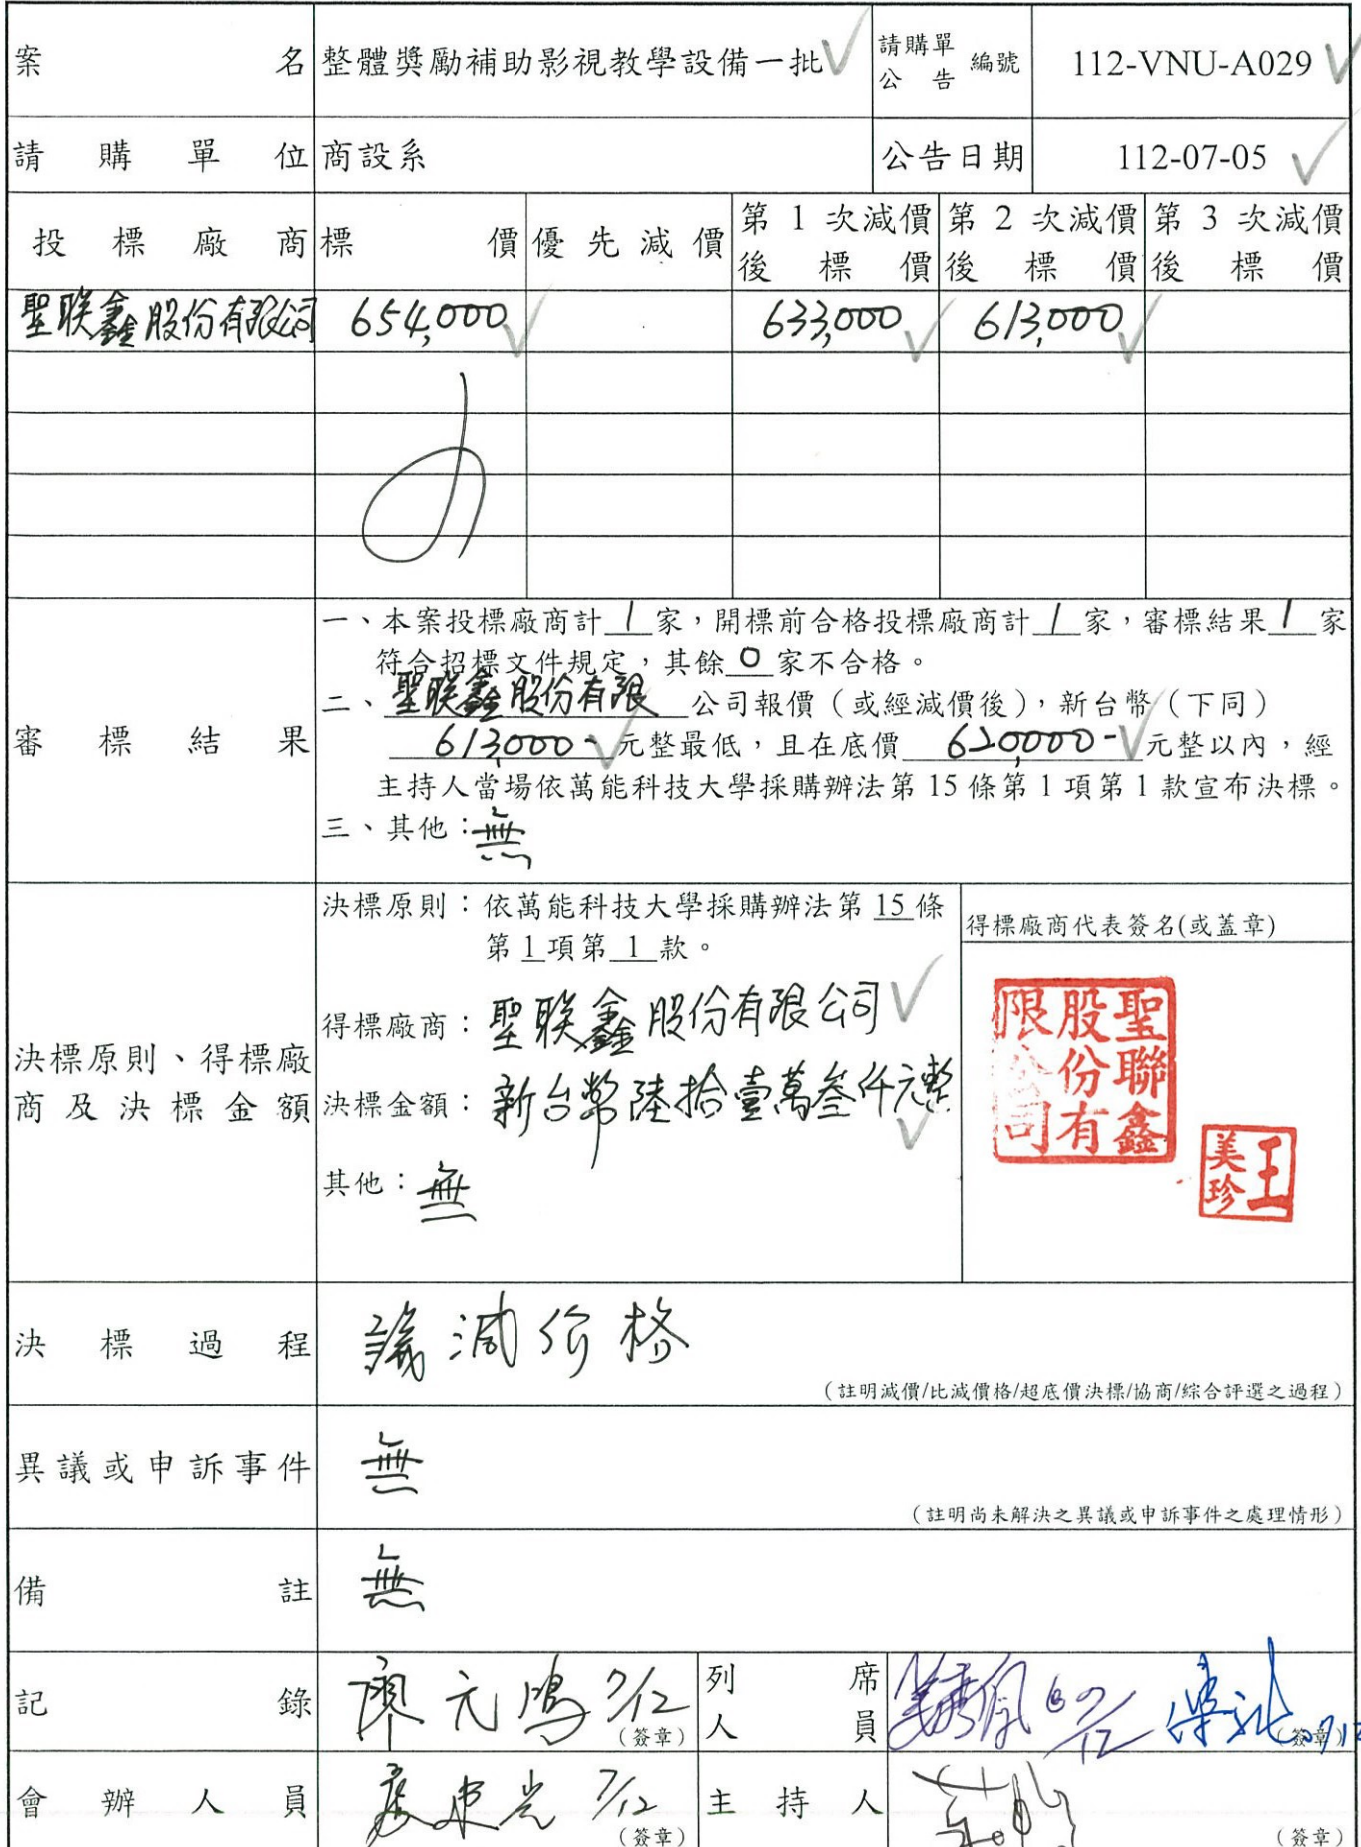 案名 整體獎勵補助影視教學設備一批 請購單公告編號 112-VNU-A029
請購單位 商設系 公告日期 112-07-05
投標廠商 標價 優先減價 第1次減價後標價 第2次減價後標價 第3次減價後標價
聖联鑫股份有限公司 654,000 633,000 613,000
審標結果
一、本案投標廠商計 1 家，開標前合格投標廠商計 1 家，審標結果 1 家
符合招標文件規定，其餘 0 家不合格。
二、聖联鑫股份有限 公司報價（或經減價後），新台幣（下同）
613,000- 元整最低，且在底價 620,000- 元整以內，經
主持人當場依萬能科技大學採購辦法第15條第1項第1款宣布決標。
三、其他：無
決標原則、得標廠
商及決標金額
決標原則：依萬能科技大學採購辦法第 15 條
第 1 項第 1 款。
得標廠商：聖联鑫股份有限公司
決標金額：新台幣陸拾壹萬叁仟元整
其他：無
得標廠商代表簽名(或蓋章)
聖聯鑫
股份有
限公司
王美珍
決標過程 議減价格
（註明減價/比減價格/超底價決標/協商/綜合評選之過程）
異議或申訴事件 無
（註明尚未解決之異議或申訴事件之處理情形）
備註 無
記錄 廖元鳴 7/12 （簽章） 列席人員 07/12 （簽章） 07/12
會辦人員 7/12 （簽章） 主持人 （簽章）